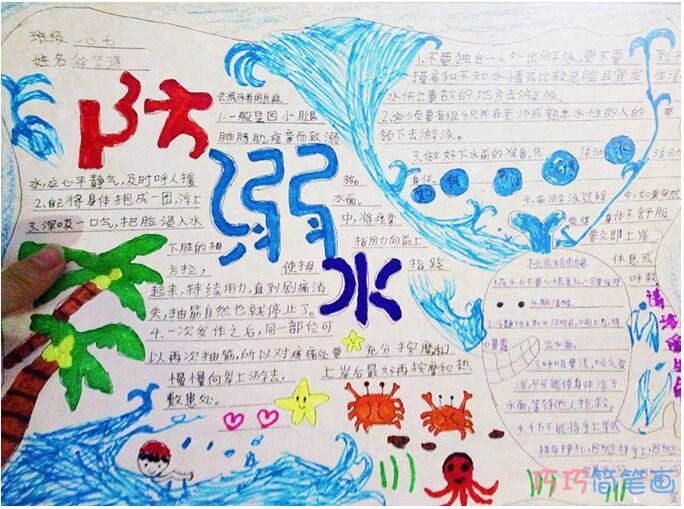 班级 一〇七
姓名
防溺水
会游泳者的自救
1.一般是因小腿
腓肠肌痉挛而致溺
水,应心平静气,及时呼人援
2.自己将身体抱成一团,浮上
水面。
3.深吸一口气,把脸浸入水
中,将痉挛
下肢的拇
指用力向前上
方拉,
使拇
指跷
起来,持续用力,直到剧痛消
失,抽筋自然也就停止了。
4.一次发作之后,同一部位可
以再次抽筋,所以对疼痛处要充分按摩和
慢慢向岸上游去,
上岸后最好再按摩和热
敷患处。
1.不要独自一人外出游泳,更不要
到不
摸底和不知水情或比较危险且宜发
生溺
水伤亡事故的地方去游泳。
2.必须要有组织并在老师或熟悉水性的人的
带
领下去游泳。
3.做好下水前的准备,先
活动
活动
身体
4.在游泳过程
中,如果突然
觉得
身体不舒服
要立即上岸
休息或
呼救
出水面。
3.呼吸要浅,吸气宜
深,尽可能使身体浮于
水面,等待他人抢救。
4.千万不能将手上举或
巧巧简笔画